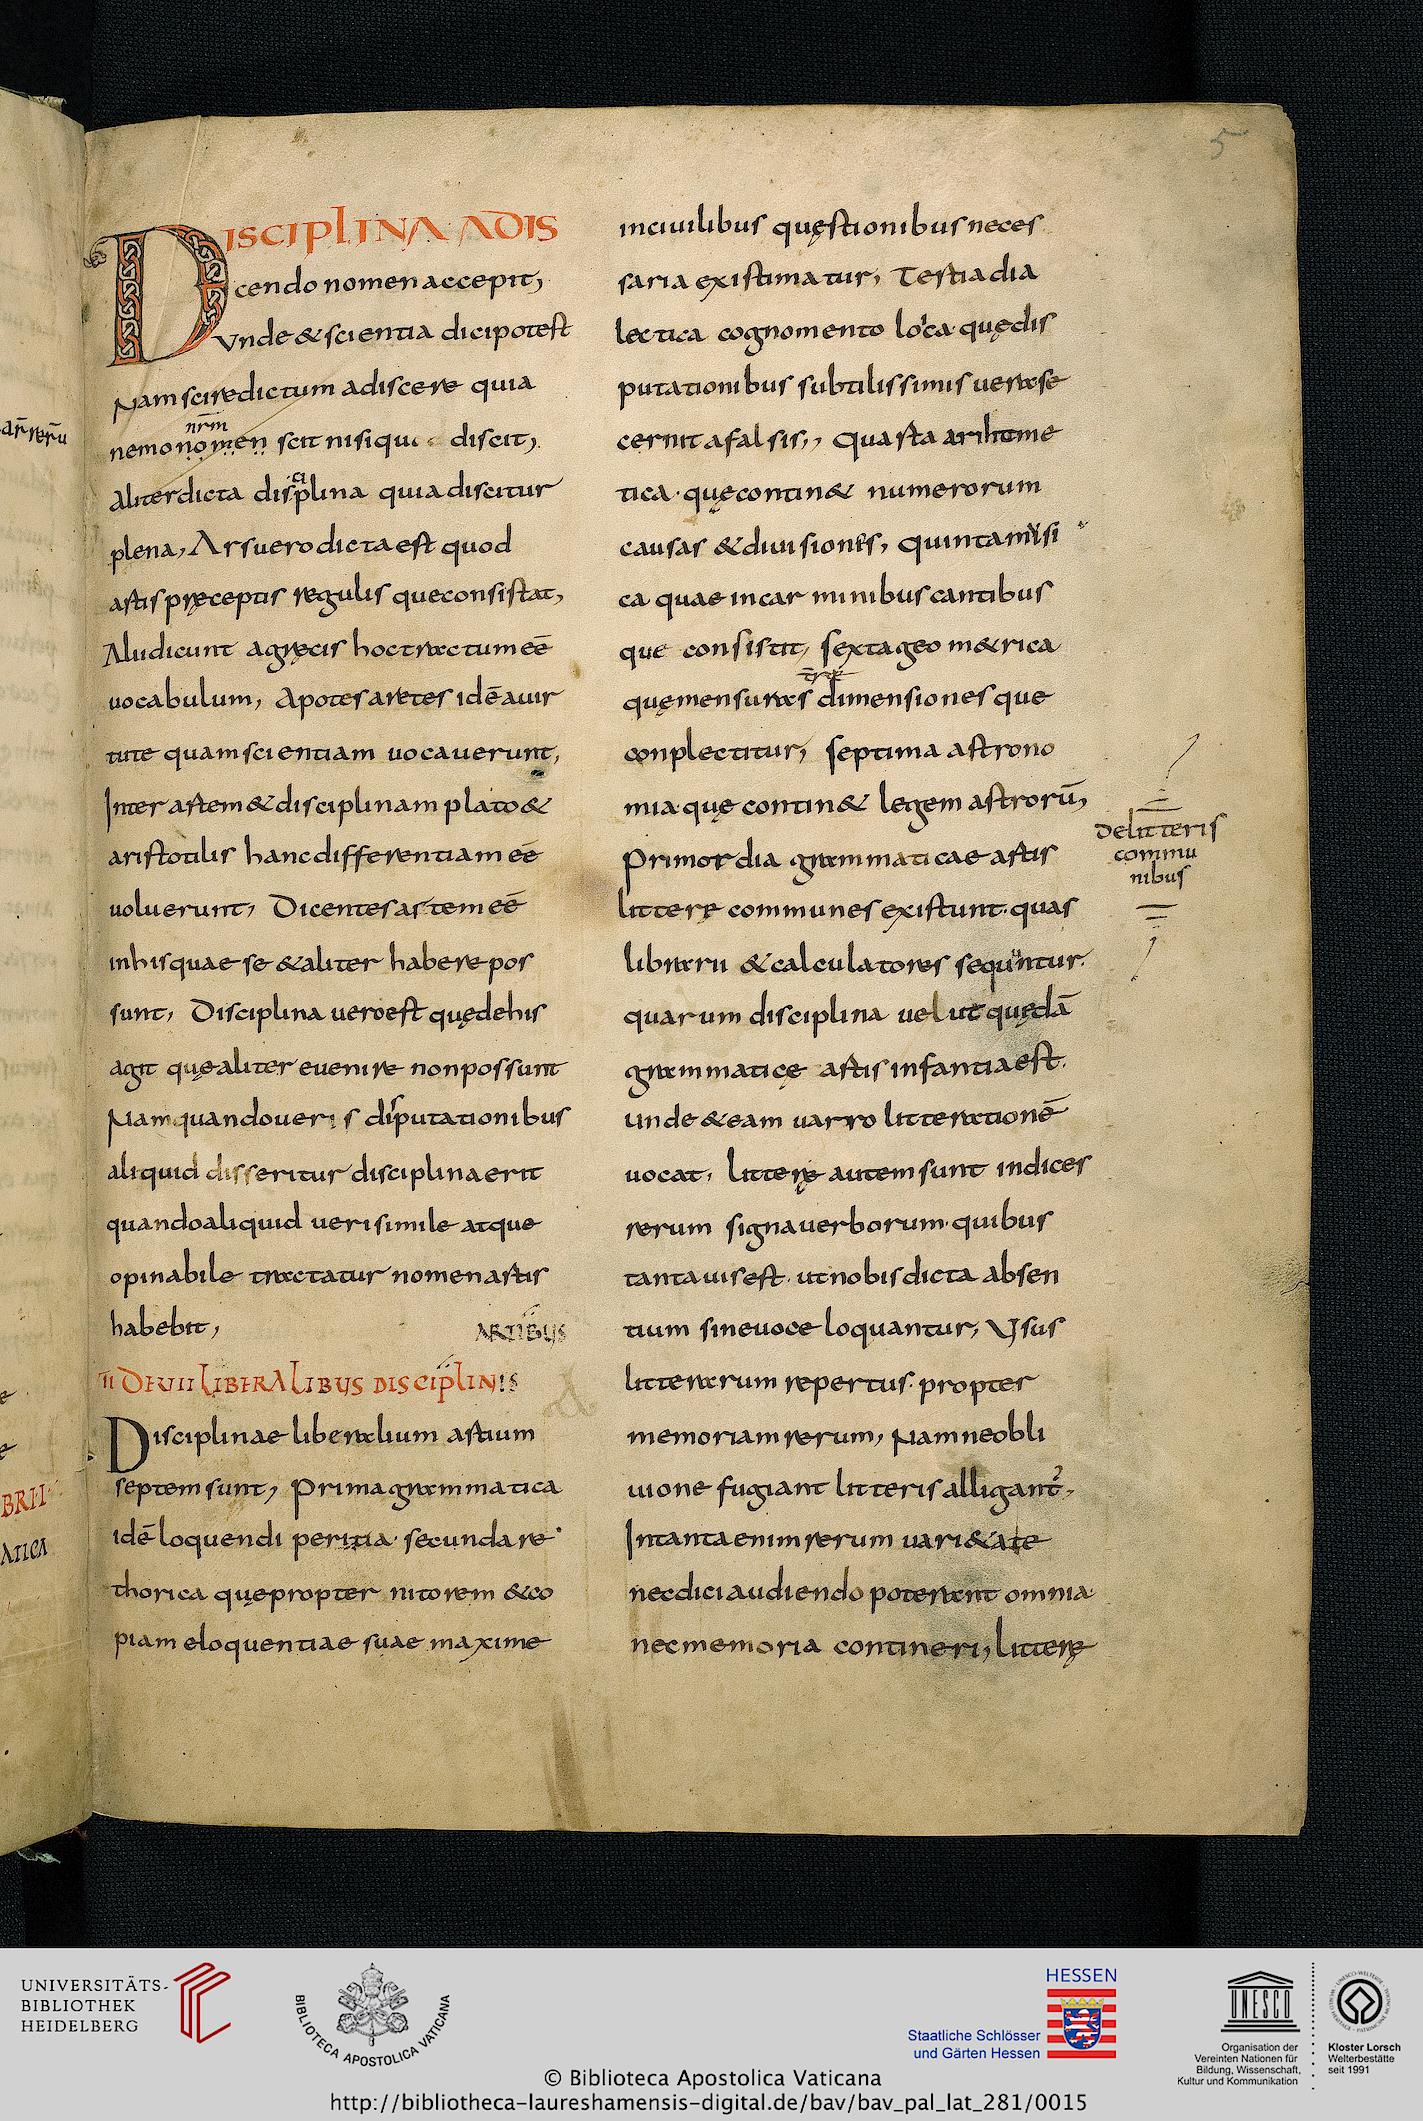 5
DISCIPLINA A DIS
cendo nomen accepit,
Vnde & scientia dici potest
Nam scire dictum adiscere quia
nrm
nemo nomen scit nisi qui discit,
aliter dicta disciplina quia discitur
plena, Ars uero dicta est quod
artis preceptis regulis que consistat,
Alii dicunt a gręcis hoc tractum eē
uocabulum, Apotes aretes idē a uir
tute quam scientiam uocauerunt,
Inter artem & disciplinam plato &
aristotilis hanc differentiam eē
uoluerunt, Dicentes artem eē
in his quae se & aliter habere pos
sunt, Disciplina uero est quę de his
agit quę aliter euenire non possunt
Nam quando ueris disputationibus
aliquid disseritur disciplina erit
quando aliquid uerisimile atque
opinabile tractatur nomen artis
habebit,
ARTIBUS
II DE VII LIBERALIBUS DISCIPLINIS
Disciplinae liberalium artium
septem sunt, Prima grammatica
idē loquendi peritia· secunda re
thorica quę propter nitorem & co
piam eloquentiae suae maxime
in ciuilibus quęstionibus neces
saria existimatur, Tertia dia
lectica cognomento loica· quę dis
putationibus subtilissimis uera se
cernit a falsis, Quarta arihtme
tica· quę contin& numerorum
causas & diuisiones, Quinta musi
ca quae in carminibus cantibus
que consistit, sexta geom&rica
quę mensuras dimensionesque
conplectitur, septima astrono
mia· quę contin& legem astrorū,
Primordia grammaticae artis
litterę communes existunt· quas
librarii & calculatores sequuntur·
quarum disciplina uelut quędā
grammaticę artis infantia est·
unde & eam uarro litterationē
uocat· litterę autem sunt indices
rerum signa uerborum· quibus
tanta uis est· ut nobis dicta absen
tium sine uoce loquantur, Vsus
litterarum repertus· propter
memoriam rerum, Nam ne obli
uione fugiant litteris alligant̄
In tanta enim rerum uari&ate
nec dici audiendo poterant omnia
nec memoria contineri, litterę
De litteris
commu
nibus
UNIVERSITÄTS-
BIBLIOTHEK
HEIDELBERG
BIBLIOTECA APOSTOLICA VATICANA
HESSEN
Staatliche Schlösser
und Gärten Hessen
UNESCO
Organisation der
Vereinten Nationen für
Bildung, Wissenschaft,
Kultur und Kommunikation
Kloster Lorsch
Welterbestätte
seit 1991
© Biblioteca Apostolica Vaticana
http://bibliotheca-laureshamensis-digital.de/bav/bav_pal_lat_281/0015